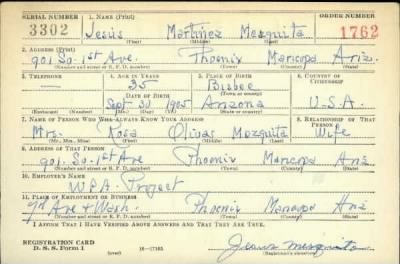 SERIAL NUMBER 1. NAME (Print) ORDER NUMBER
3302 Jesús Martinez Mezquita 1762
(First) (Middle) (Last)
2. ADDRESS (Print)
901 So. 1st Ave. Phoenix Maricopa Ariz.
(Number and street or R. F. D. number) (Town) (County) (State)
3. TELEPHONE 4. AGE IN YEARS 5. PLACE OF BIRTH 6. COUNTRY OF CITIZENSHIP
— 35 Bisbee
DATE OF BIRTH (Town or county)
Sept 30 1905 Arizona U.S.A.
(Exchange) (Number) (Mo.) (Day) (Yr.) (State or country)
7. NAME OF PERSON WHO WILL ALWAYS KNOW YOUR ADDRESS 8. RELATIONSHIP OF THAT PERSON
Mrs. Rosa Olivas Mezquita Wife
(Mr., Mrs., Miss) (First) (Middle) (Last)
9. ADDRESS OF THAT PERSON
901. So. 1st Ave Phoenix Maricopa Ariz
(Number and street or R. F. D. number) (Town) (County) (State)
10. EMPLOYER'S NAME
W.P.A. Project
11. PLACE OF EMPLOYMENT OR BUSINESS
Ave & Wash. Phoenix Maricopa Ariz
(Number and street or R. F. D. number) (Town) (County) (State)
I AFFIRM THAT I HAVE VERIFIED ABOVE ANSWERS AND THAT THEY ARE TRUE.
REGISTRATION CARD
D. S. S. Form 1 (over) 16—17105 Jesus Mesquita
(Registrant's signature)